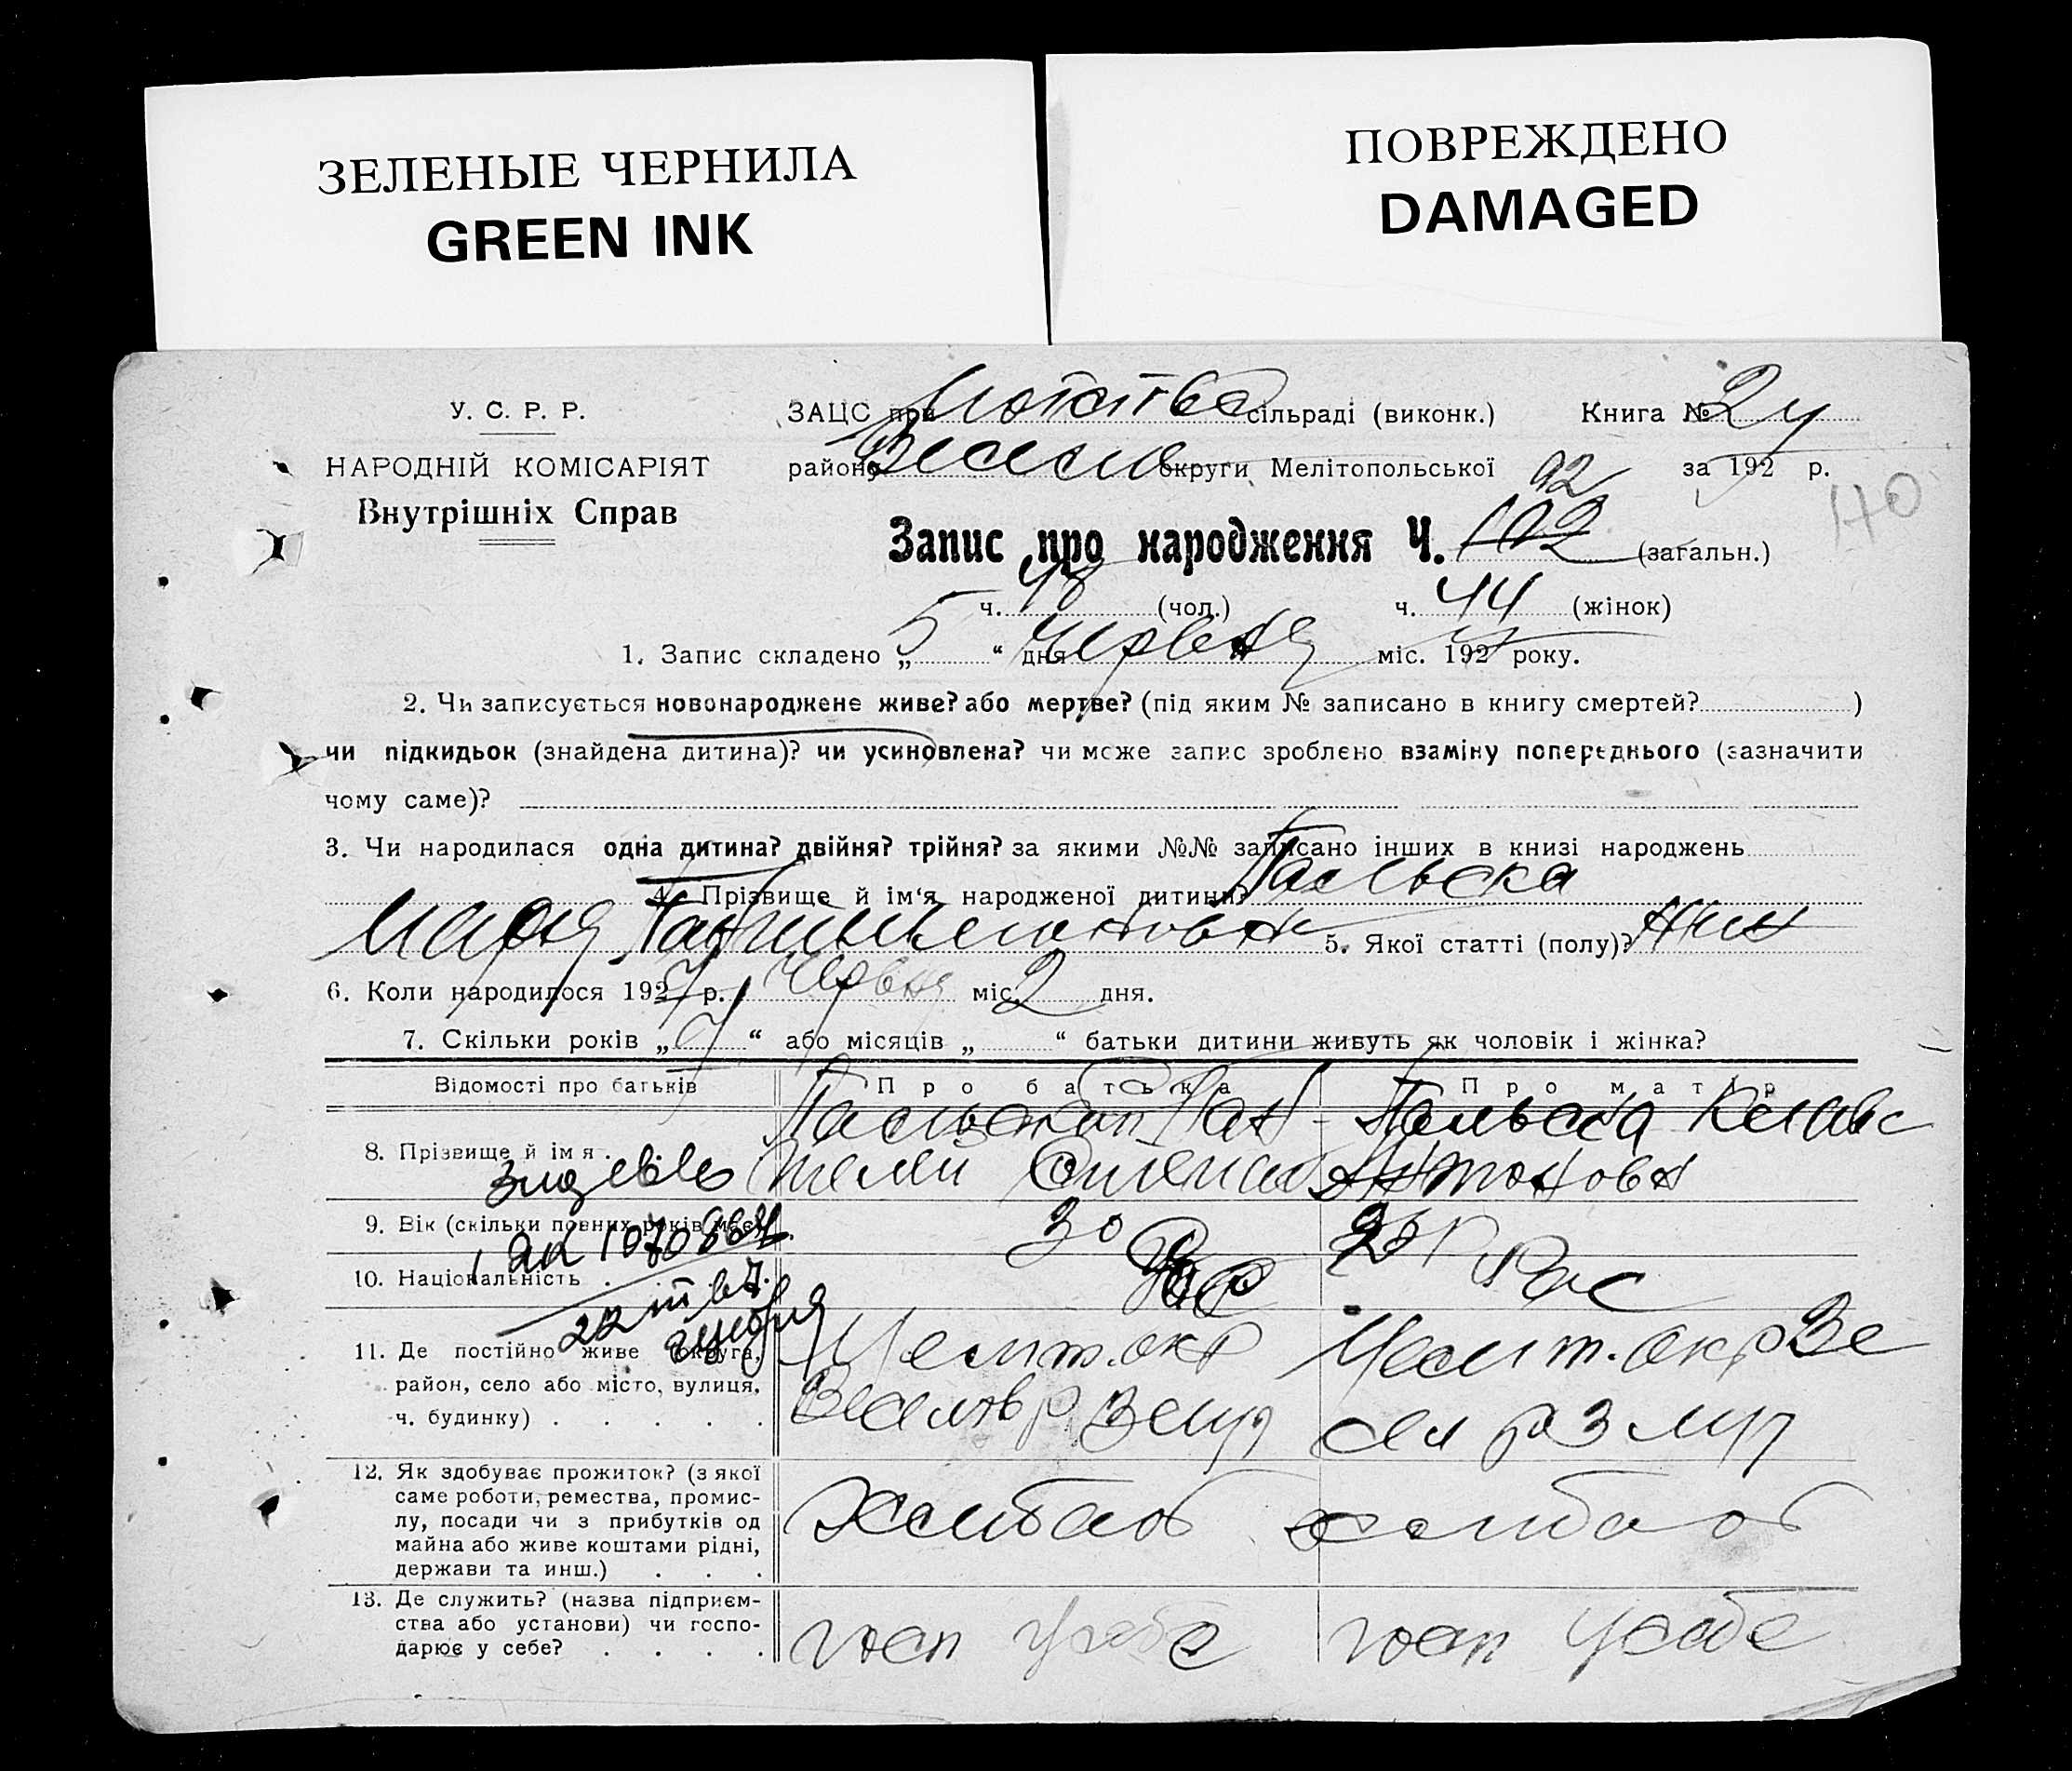 ЗЕЛЕНЫЕ ЧЕРНИЛА
GREEN INK
ПОВРЕЖДЕНО
DAMAGED
У. С. Р. Р.
НАРОДНІЙ КОМІСАРІЯТ
Внутрішніх Справ
ЗАЦС при сільраді (виконк.) Книга №
району округи Мелітопольської за 192 р.
92
140
Запис про народження Ч. 102 (загальн.)
ч. 48 (чол.) ч. 44 (жінок)
1. Запис складено „ 5 “ дня Червня міс. 192 року.
2. Чи записується новонароджене живе? або мертве? (під яким № записано в книгу смертей? )
чи підкидьок (знайдена дитина)? чи усиновлена? чи може запис зроблено взаміну попереднього (зазначити
чому саме)?
3. Чи народилася одна дитина? двійня? трійня? за якими №№ записано інших в книзі народжень
4. Прізвище й ім‘я народженої дитини? Пальска
Мария 5. Якої статті (полу)? жин
6. Коли народилося 192 р. Червня міс. 2 дня.
7. Скільки років „ “ або місяців „ “ батьки дитини живуть як чоловік і жінка?
Відомості про батьків Про батька Про матір
8. Прізвище й ім я . Пальска
Антоновн
9. Вік (скільки повних років має) 30
10. Національність . Рос
11. Де постійно живе (округа, Мелит. окр Мелит. окр Ве
район, село або місто, вулиця,
ч. будинку) . . . . .
12. Як здобуває прожиток? (з якої
саме роботи, ремества, промис-
лу, посади чи з прибутків од хлібороб хлібороб
майна або живе коштами рідні,
держави та инш.) . . .
13. Де служить? (назва підприєм-
ства або установи) чи госпо- госп у себе госп у себе
дарює у себе? . . . .